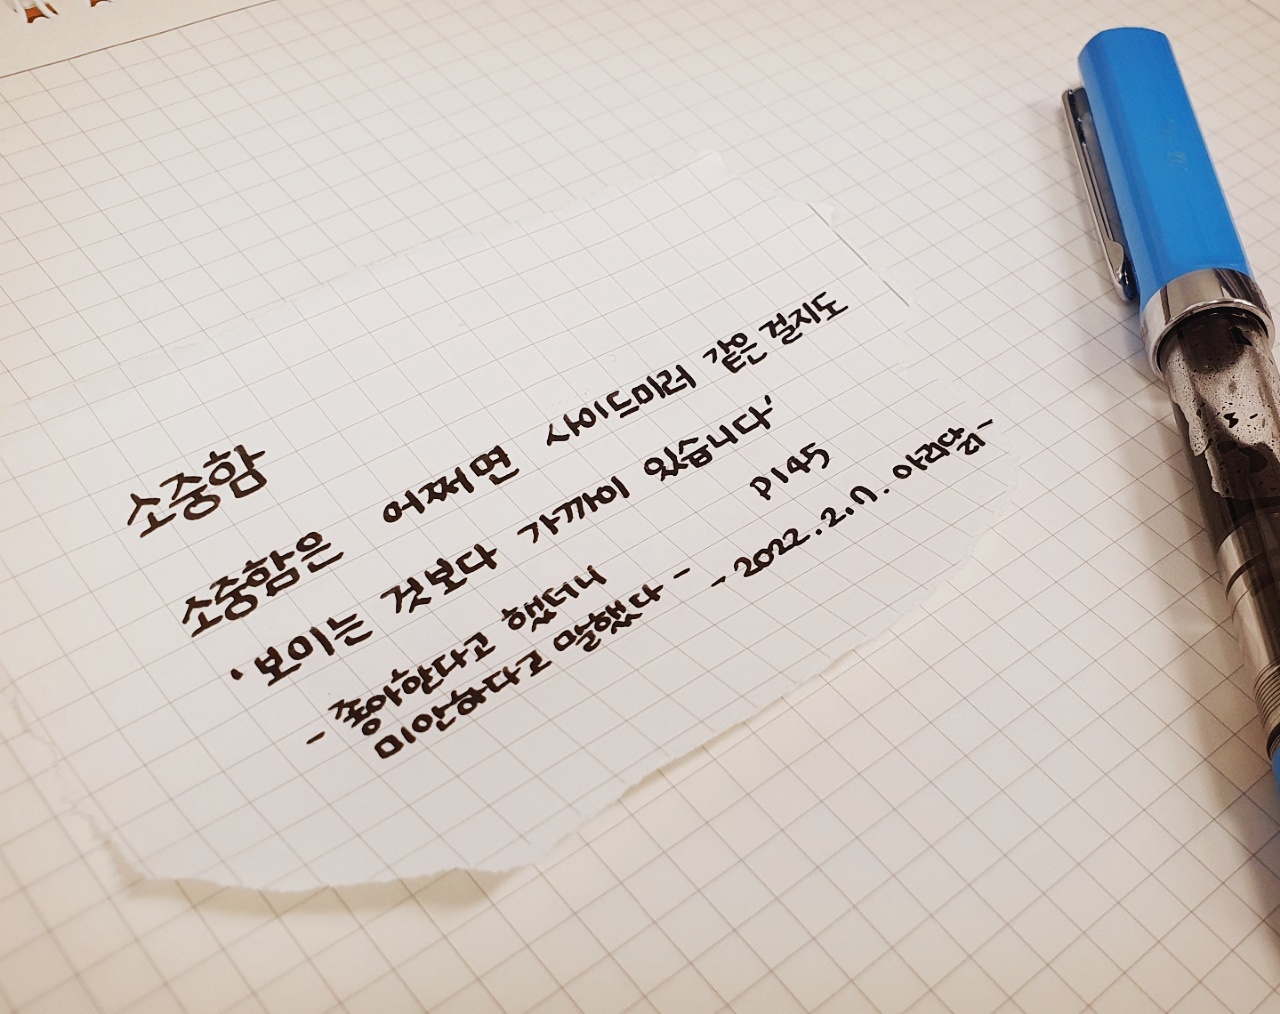 소중함
소중함은 어쩌면 사이드미러 같은 걸지도
'보이는 것보다 가까이 있습니다'
- 좋아한다고 했더니
미안하다고 말했다 -
P145
- 2022.2.7. 아리담리 -